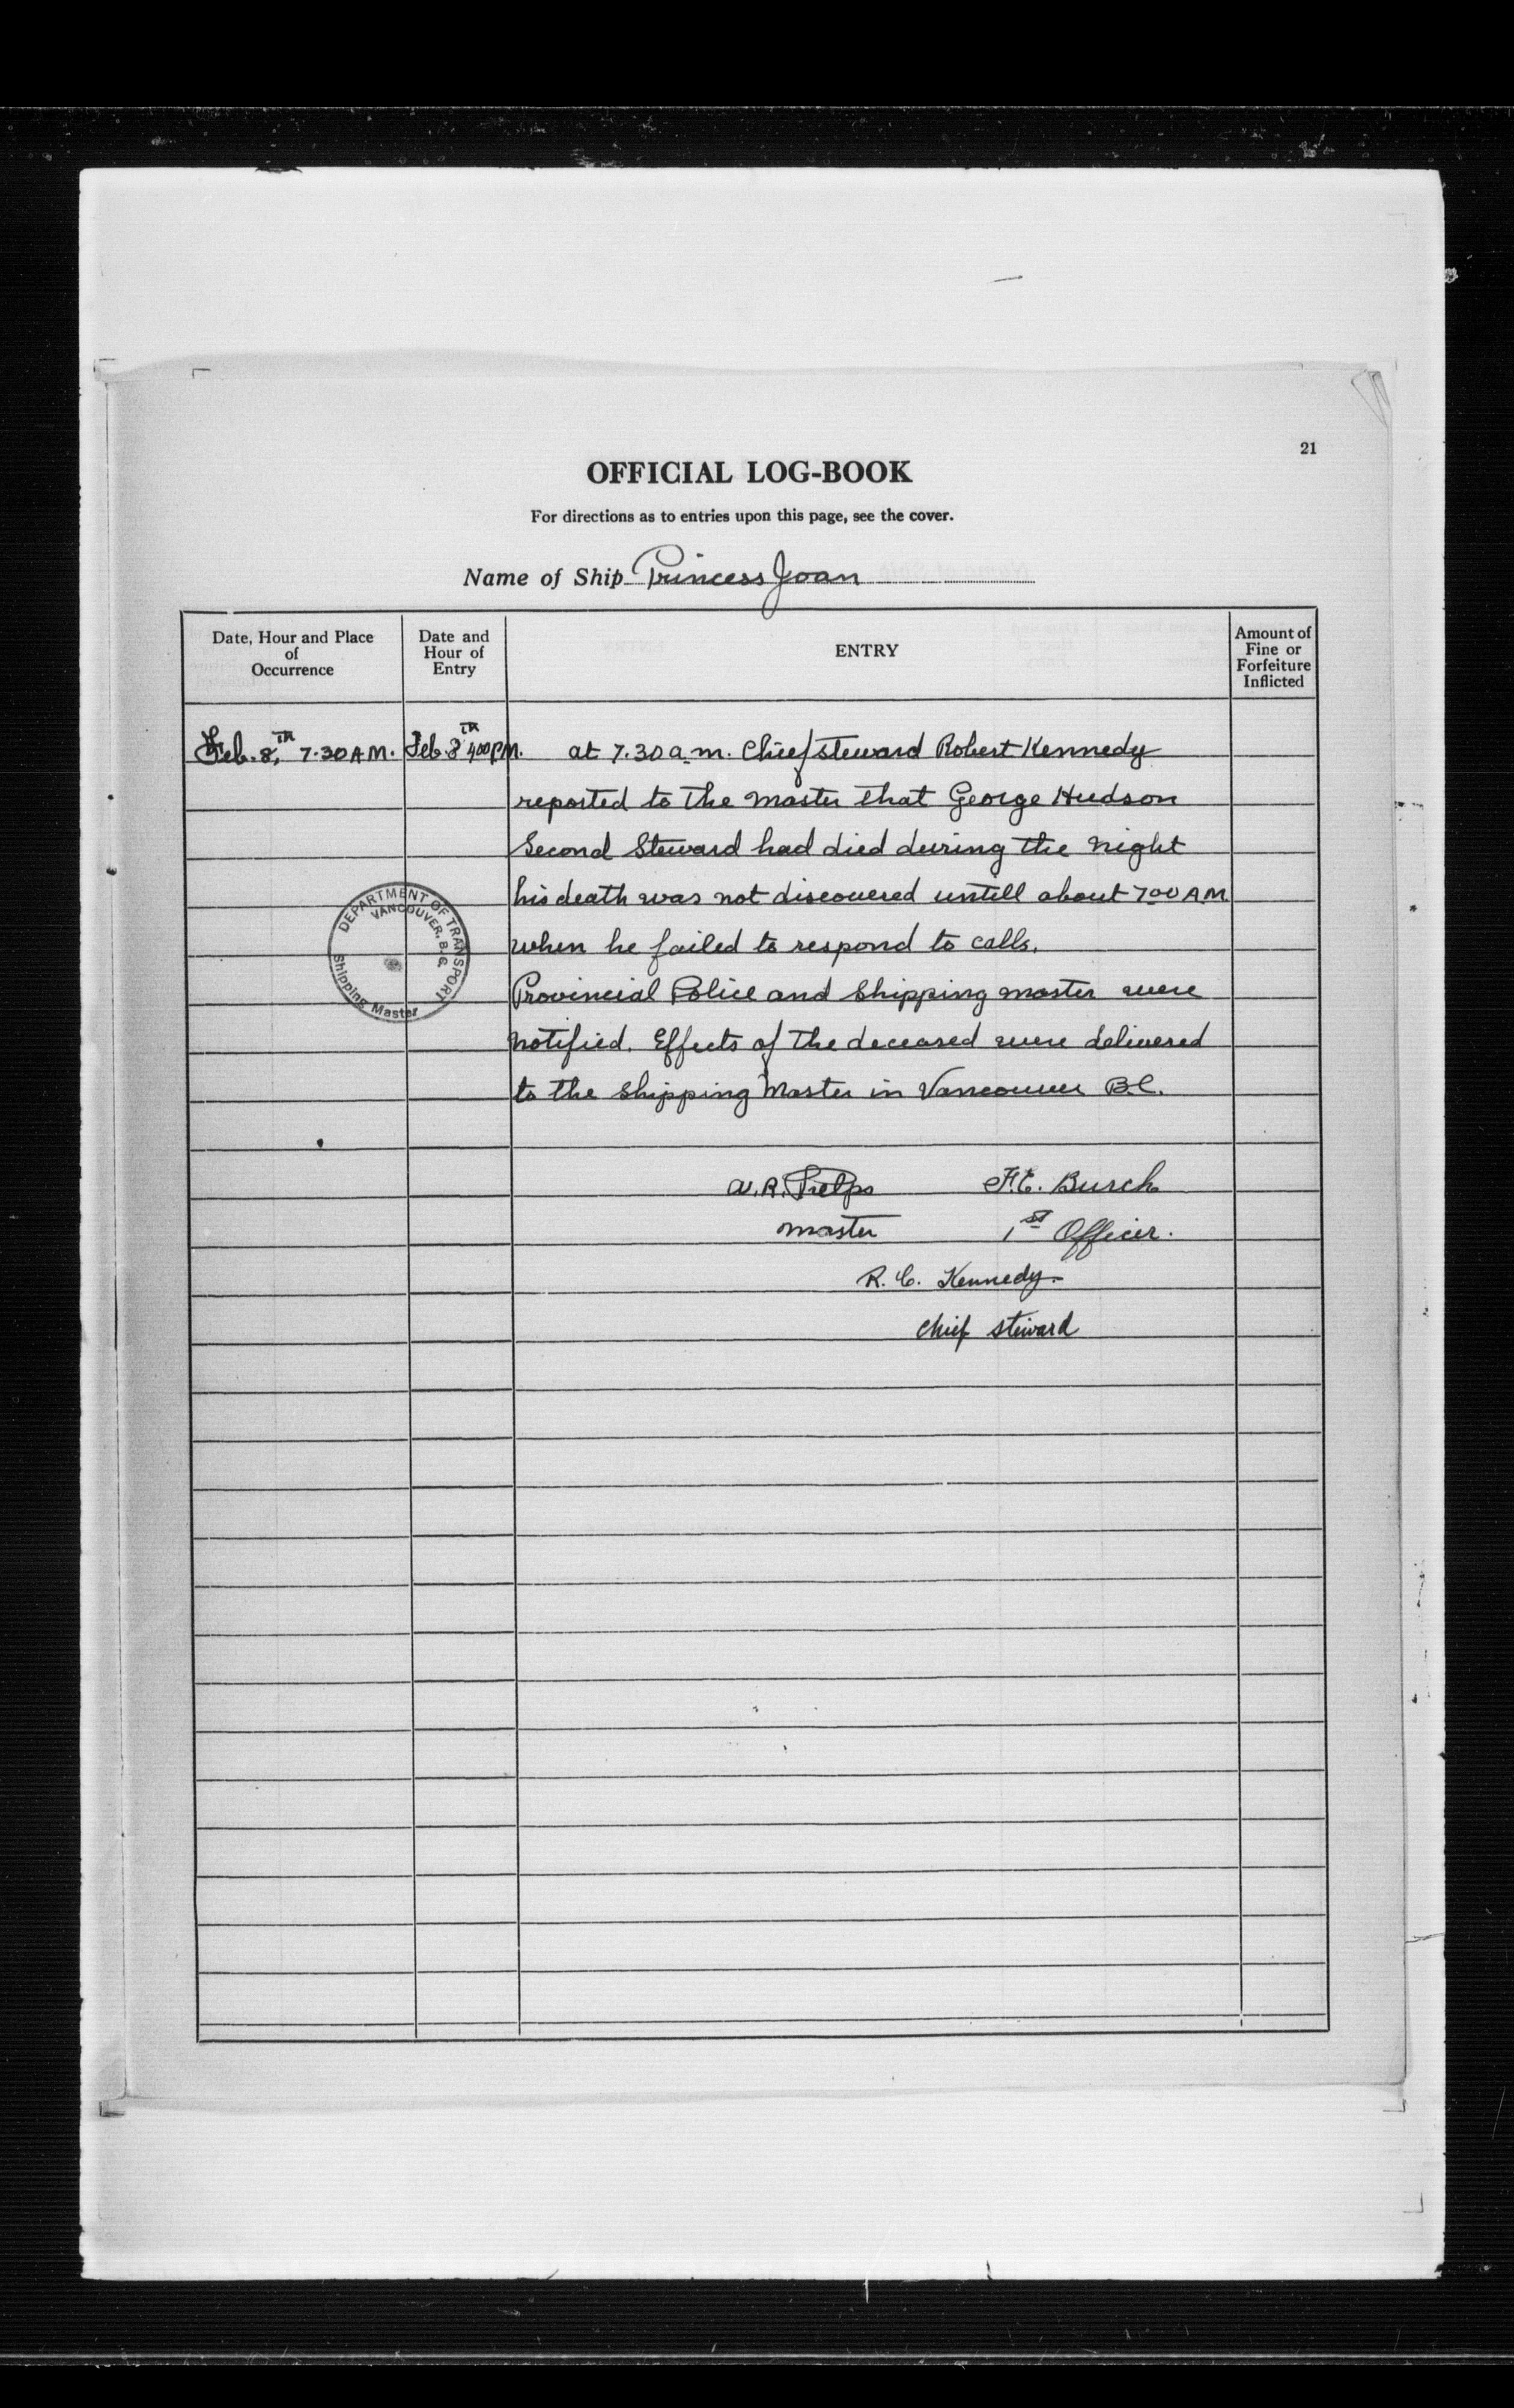 21
OFFICIAL LOG-BOOK
For directions as to entries upon this page, see the cover.
Name of Ship Princess Joan
Date, Hour and Place
of
Occurrence
Date and
Hour of
Entry
ENTRY
Amount of
Fine or
Forfeiture
Inflicted
Feb. 8, th 7.30 A.M. Feb. 8 th 400 P.M. at 7.30 a.m. Chief steward Robert Kennedy
reported to the Master that George Hudson
Second Steward had died during the night
his death was not discovered untill about 700 AM
when he failed to respond to calls.
Provincial Police and Shipping master were
notified. Effects of the deceased were delivered
to the Shipping Master in Vancouver B.C.
DEPARTMENT OF TRANSPORT
VANCOUVER, B.C.
Shipping Master
F.E. Burch
master 1st Officer.
R. C. Kennedy
chief steward